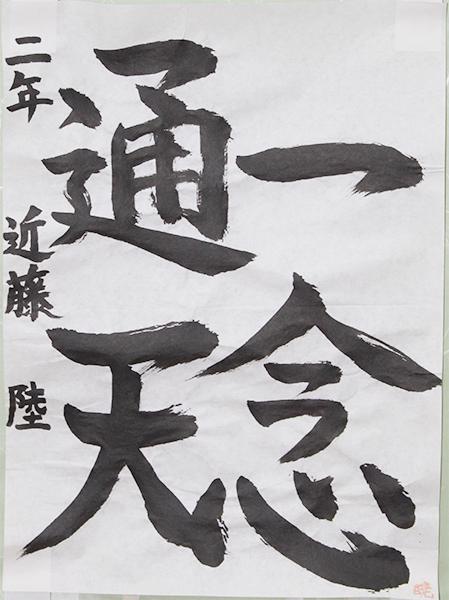 一念
通天
二年 近藤 陸